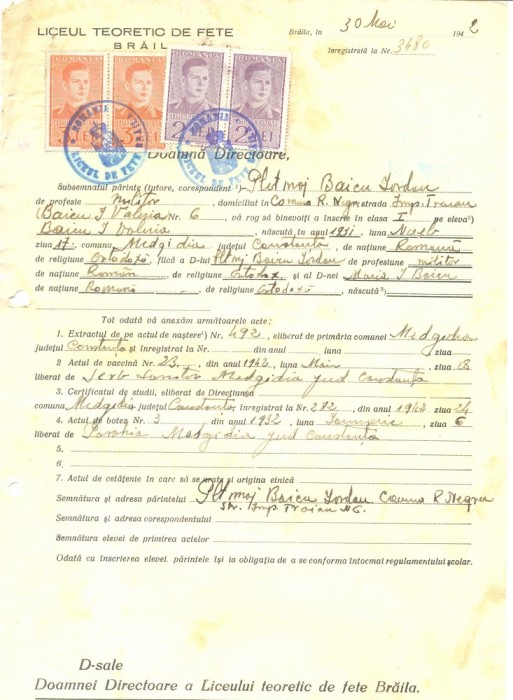 LICEUL TEORETIC DE FETE
BRĂILA
Brăila, in 30 Mai 1942
Inregistrată la Nr. 3480
ROMANIA ROMANIA ROMANIA ROMANIA
3 LEI 2 LEI 2 LEI
ROMANIA
LICEUL DE FETE
Doamnă Directoare,
Subsemnatul părinte (tutore, corespondent ¹) Plt maj Baicu Iordan
de profesie militor, domiciliat in Comuna R. Negru strada Imp. Traian
(Baicu I Valeria Nr. 6, vă rog să binevoiți a înscrie în clasa I pe eleva²)
Baicu I Valeria, născută in anul 1931 luna Noeb
ziua 17, comuna Medgidia județul Constanța, de națiune Romană
de religiune Ortodoxă, fiică a D-lui Plt maj Baicu Iordan de profesiune militor
de națiune Român, de religiune Ortodox și al D-nei Maria I Baicu
de națiune Romană, de religiune Ortodoxă, născută ³)
Tot odată vă anexăm următoarele acte:
1. Extractul de pe actul de naștere⁴) Nr. 492, eliberat de primăria comunei Medgidia
județul Constanța și înregistrat la Nr. din anul luna ziua
2 Actul de vaccină Nr. 23, din anul 1942 luna Main ziua 18
liberat de Serb Sanitar Medgidia jud Constanța
3. Certificatul de studii, eliberat de Direcțiunea
comuna Medgidia județul Constanța, înregistrat la Nr. 282, din anul 1942 24
4. Actul de botez Nr. 3 din anul 1932, luna Ianuarie, ziua 6
liberat de Parohia Medgidia jud Constanța
5.
6.
7. Actul de cetățenie in care să se arate și origina etnică
Semnătura și adresa părintelui Plt maj Baicu Iordan Comuna R Negru
Str. Imp Traian N 6.
Semnătura și adresa corespondentului
Semnătura elevei de primirea actelor
Odată cu înscrierea elevei. părintele își ia obligația de a se conforma întocmai regulamentului școlar.
D-sale
Doamnei Directoare a Liceului teoretic de fete Brăila.